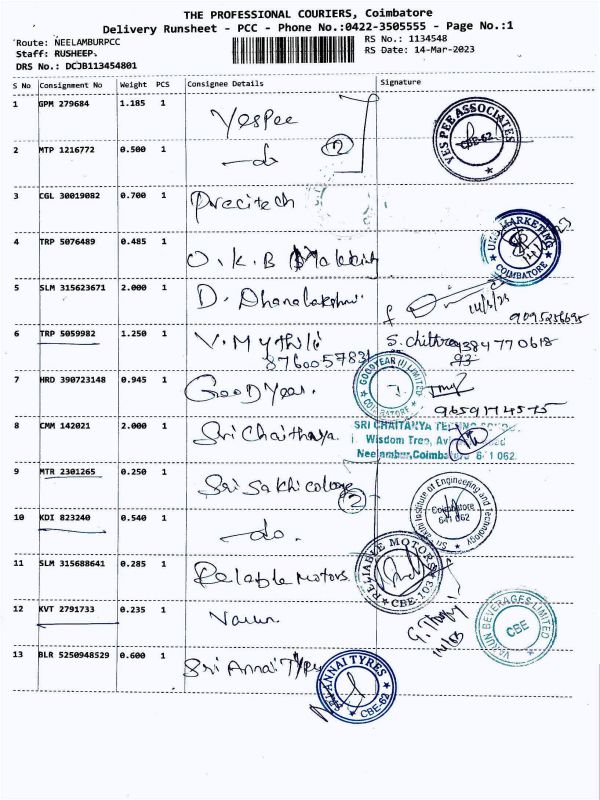 THE PROFESSIONAL COURIERS, Coimbatore
Delivery Runsheet - PCC - Phone No.:0422-3505555 - Page No.:1
Route: NEELAMBURPCC
RS No.: 1134548
Staff: RUSHEEP.
RS Date: 14-Mar-2023
DRS No.: DCJB113454801
S No Consignment No Weight PCS Consignee Details Signature
1 GPM 279684 1.185 1 Yespee
YES PEE ASSOCIATES
CBE-62
2 MTP 1216772 0.500 1 do
2
3 CGL 30019082 0.700 1 Precitech
4 TRP 5076489 0.485 1 O.K.B
MARKETING
COIMBATORE
5 SLM 315623671 2.000 1 D. Dhanalakshmi
14/3/23
9095256695
6 TRP 5059982 1.250 1 V. Mythili
8760057831
S. chithra
9384770618
7 HRD 390723148 0.945 1 GOODYear.
GOODYEAR (I) LIMITED
COIMBATORE
9659174575
8 CMM 142021 2.000 1 Sri Chaithanya
SRI CHAITANYA
Wisdom Tree,
Neelambur, Coimbatore 641 062.
9 MTR 2301265 0.250 1 Sri Sakhi college
2
Institute of Engineering and Technology
Coimbatore
641 062
10 KDI 823240 0.540 1 do.
11 SLM 315688641 0.285 1 Relable Motors
RELIABLE MOTORS
CBE-103
12 KVT 2791733 0.235 1 Varun
VARUN BEVERAGES LIMITED
CBE
13 BLR 5250948529 0.600 1 Sri Annai Tyres
SRI ANNAI TYRES
CBE-62